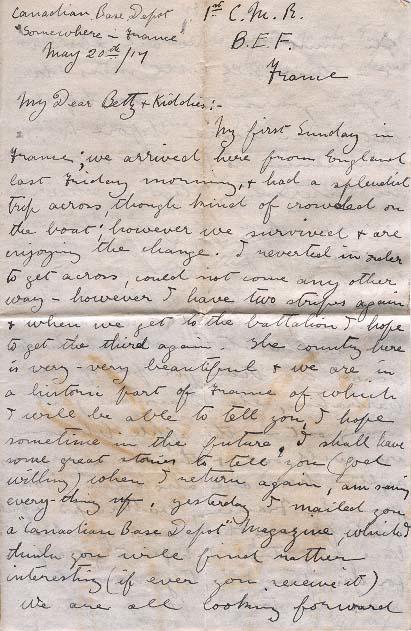 Canadian Base Depot
"Somewhere in France"
May 20th/17
1st C. M. R.
B.E.F.
France
My Dear Betty & Kiddies:-
My first Sunday in
France; we arrived here from England
last Friday morning, & had a splendid
trip across, though kind of crowded on
the boat; however we survived & are
enjoying the change. I reverted in order
to get across, could not come any other
way - however I have two stripes again
& when we get to the battalion I hope
to get the third again. The country here
is very-very beautiful & we are in
a historic part of France of which
I will be able to tell you, I hope
sometime in the future, I shall have
some great stories to tell you (God
willing) when I return again, am saving
every-thing up. yesterday I mailed you
a "Canadian Base Depot" Magazine which I
think you will find rather
interesting (if ever you receive it)
We are all looking forward